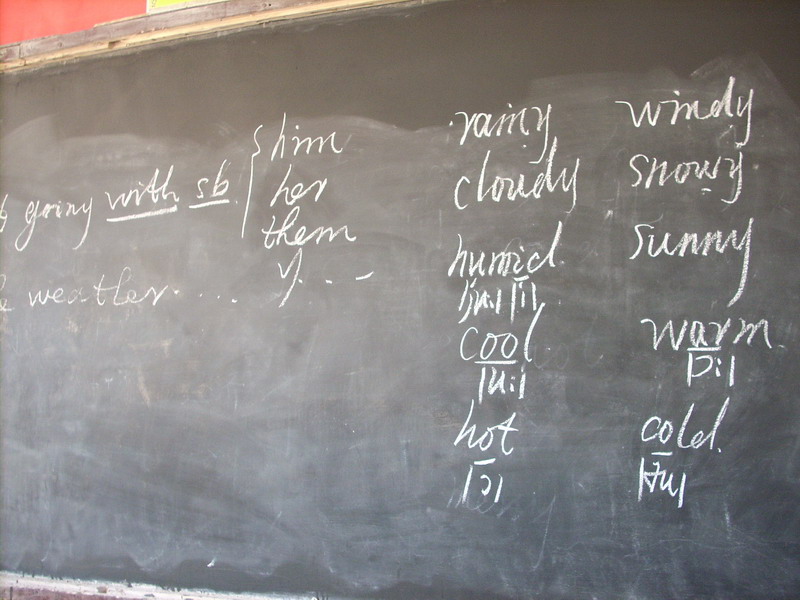 going with sb {him
her
them
y. . . –
weather. . . .
rainy windy
cloudy snowy
humid sunny
|ju:| |i|
cool warm
|u:| |ɔ:|
hot cold
|ɔ| |əu|